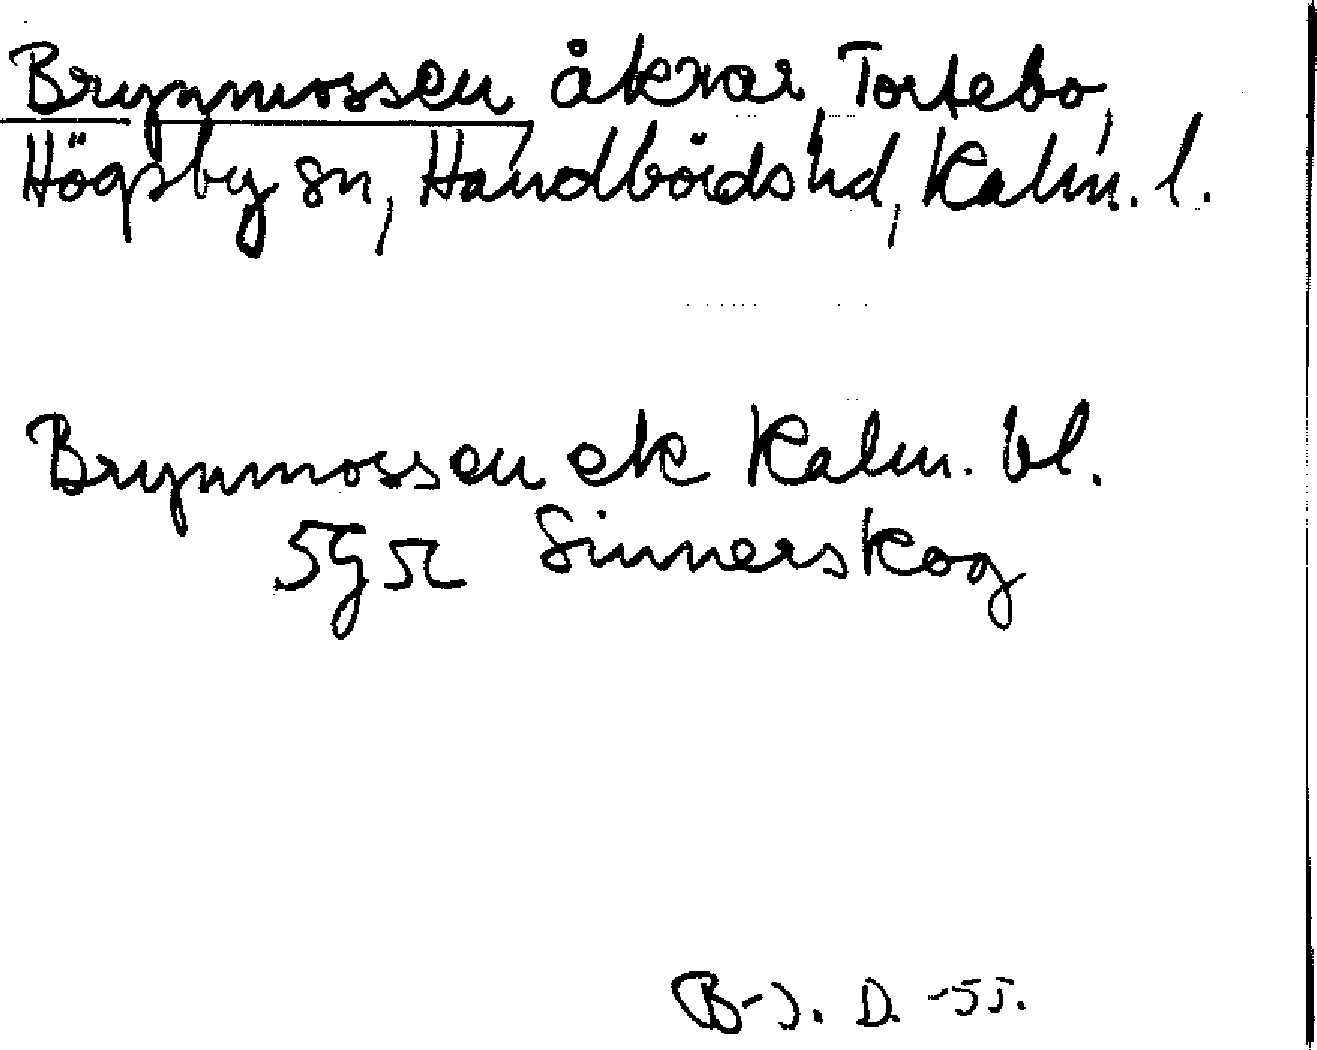 Brynmossen åkrar, Tortebo,
Högsby sn, Handbörds hd, Kalm. l.
Brynmossen ek Kalm. bl.
5g5c Sinnerskog
B-J. D. -55.